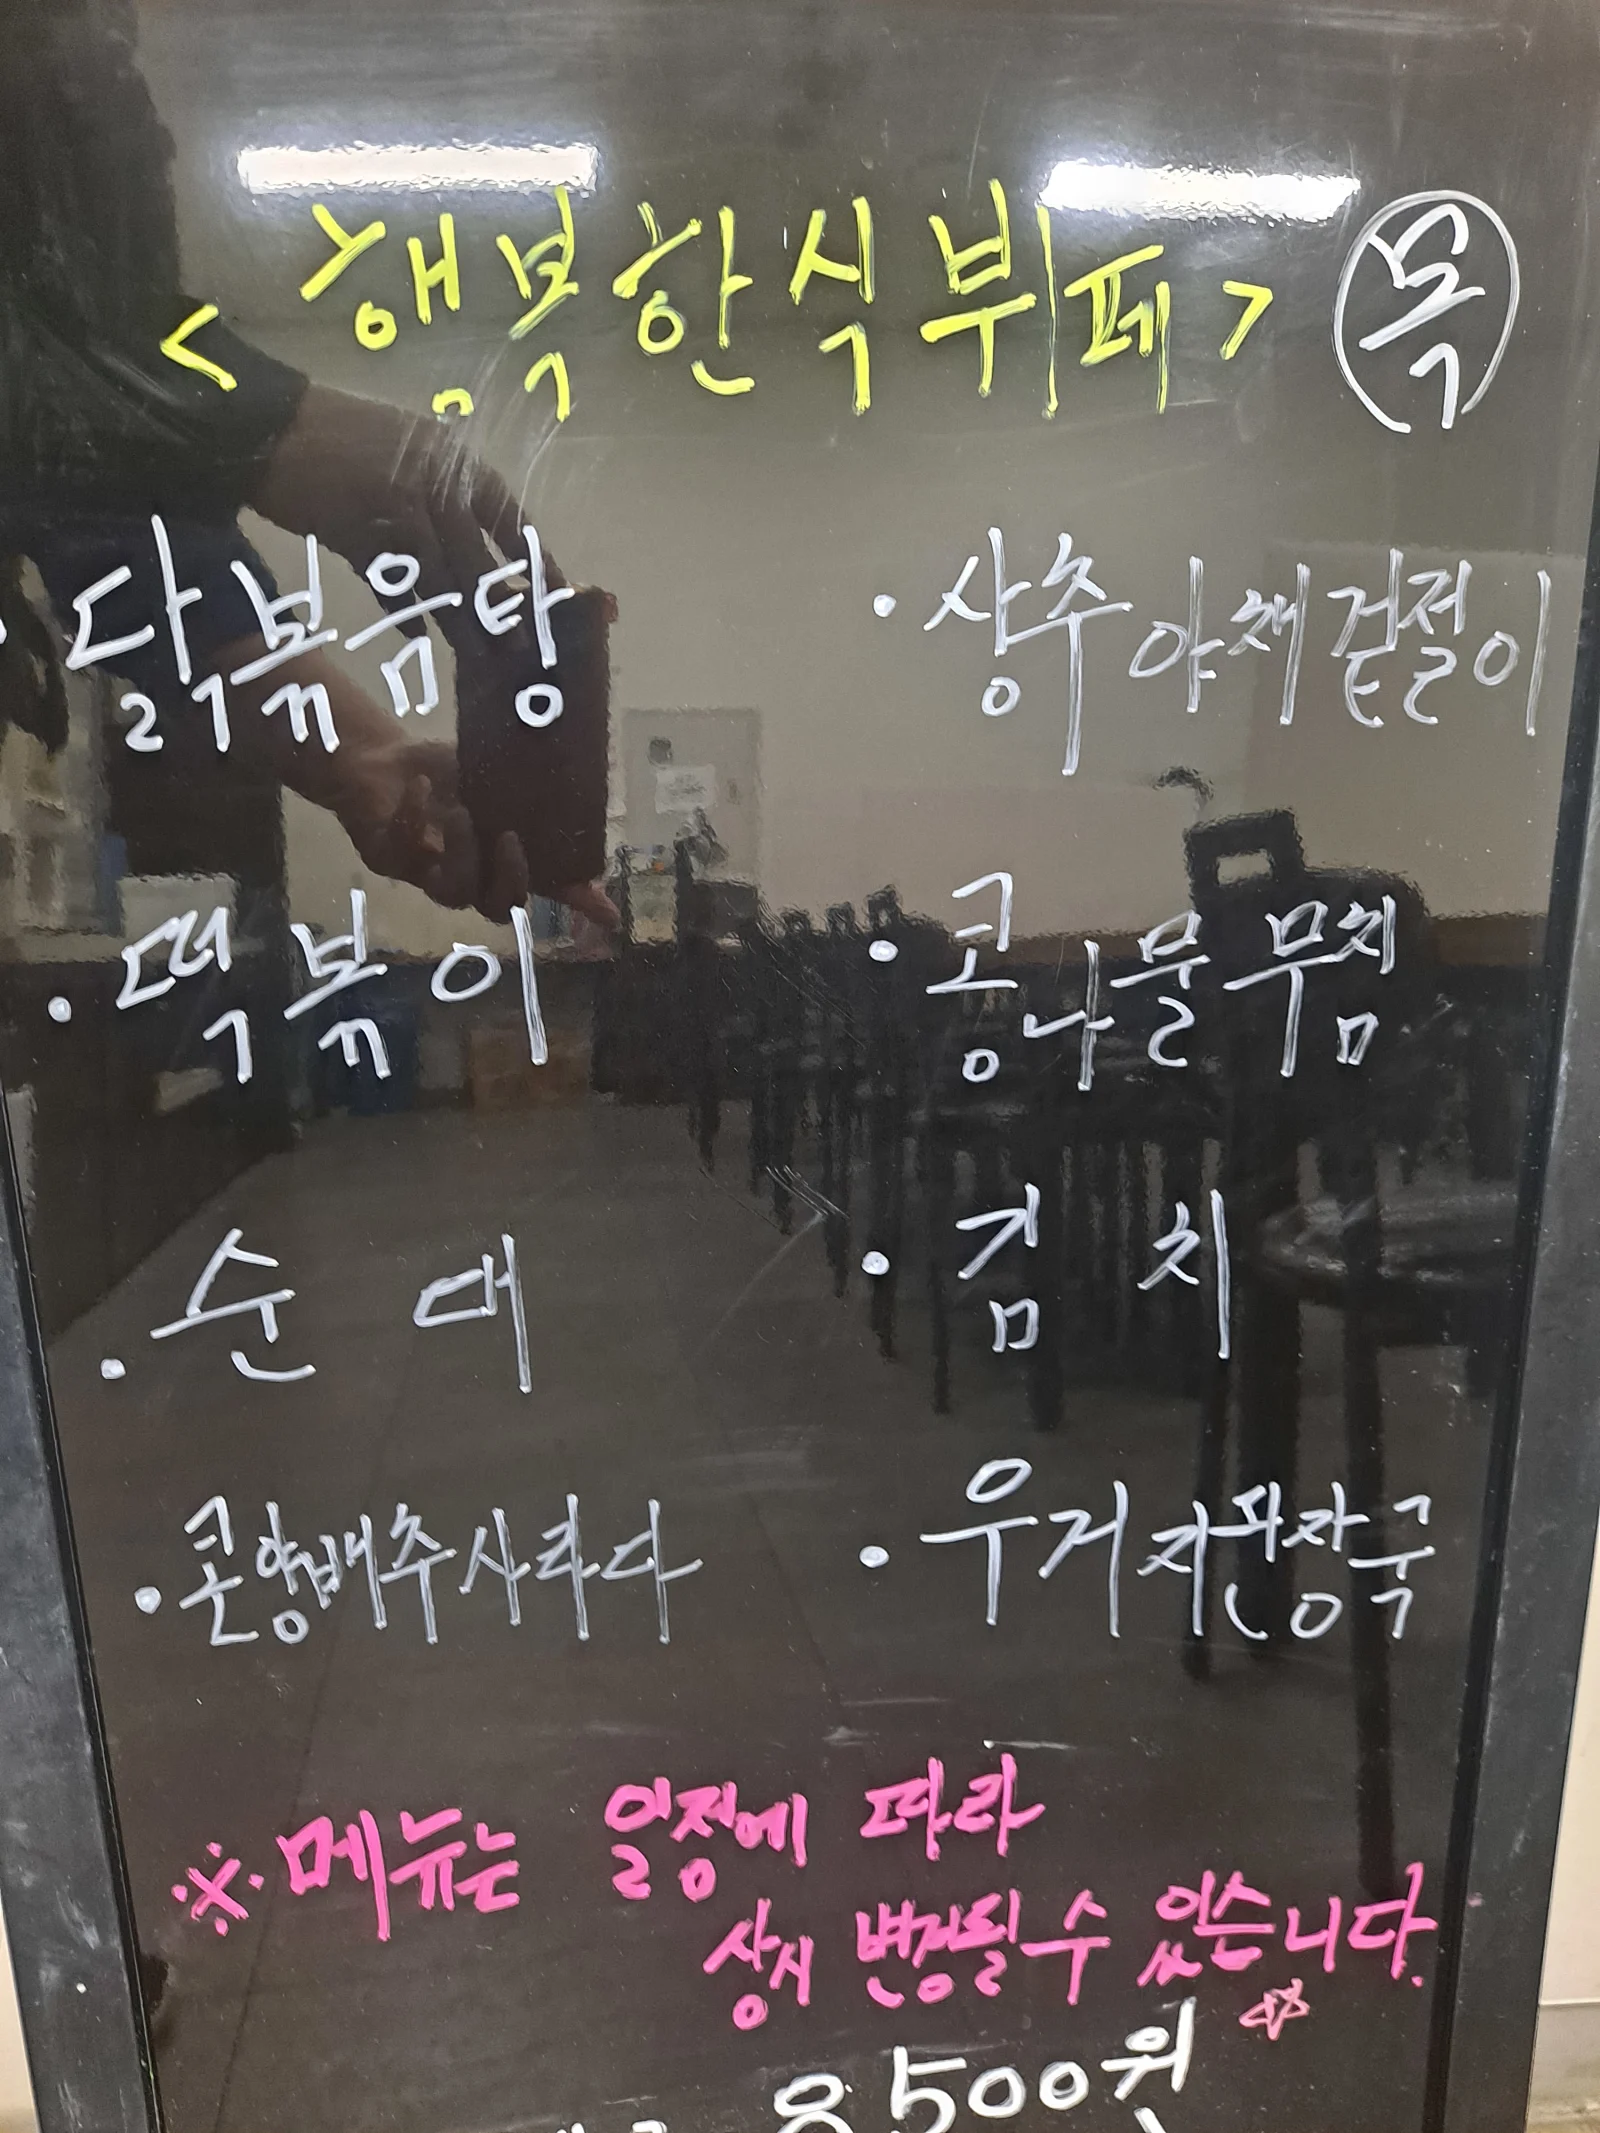 <행복한식뷔페> 목
·닭볶음탕
·상추야채겉절이
·떡볶이
·콩나물무침
·순대
·김치
·콘양배추사라다
·우거지된장국
※메뉴는 일정에 따라
상시 변경될 수 있습니다.
8,500원